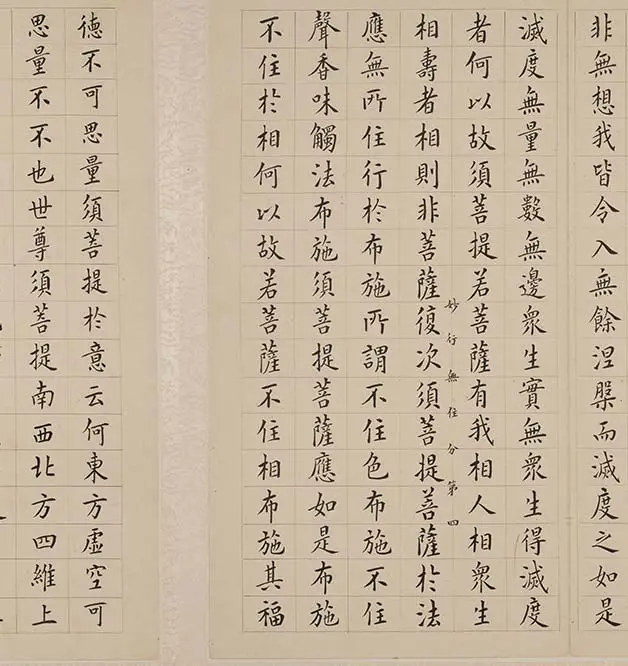 非無想我皆令入無餘涅槃而滅度之如是
滅度無量無數無邊衆生實無衆生得滅度
者何以故須菩提若菩薩有我相人相衆生
妙行無住分第四
相壽者相則非菩薩復次須菩提菩薩於法
應無所住行於布施所謂不住色布施不住
聲香味觸法布施須菩提菩薩應如是布施
不住於相何以故若菩薩不住相布施其福
德不可思量須菩提於意云何東方虛空可
思量不不也世尊須菩提南西北方四維上